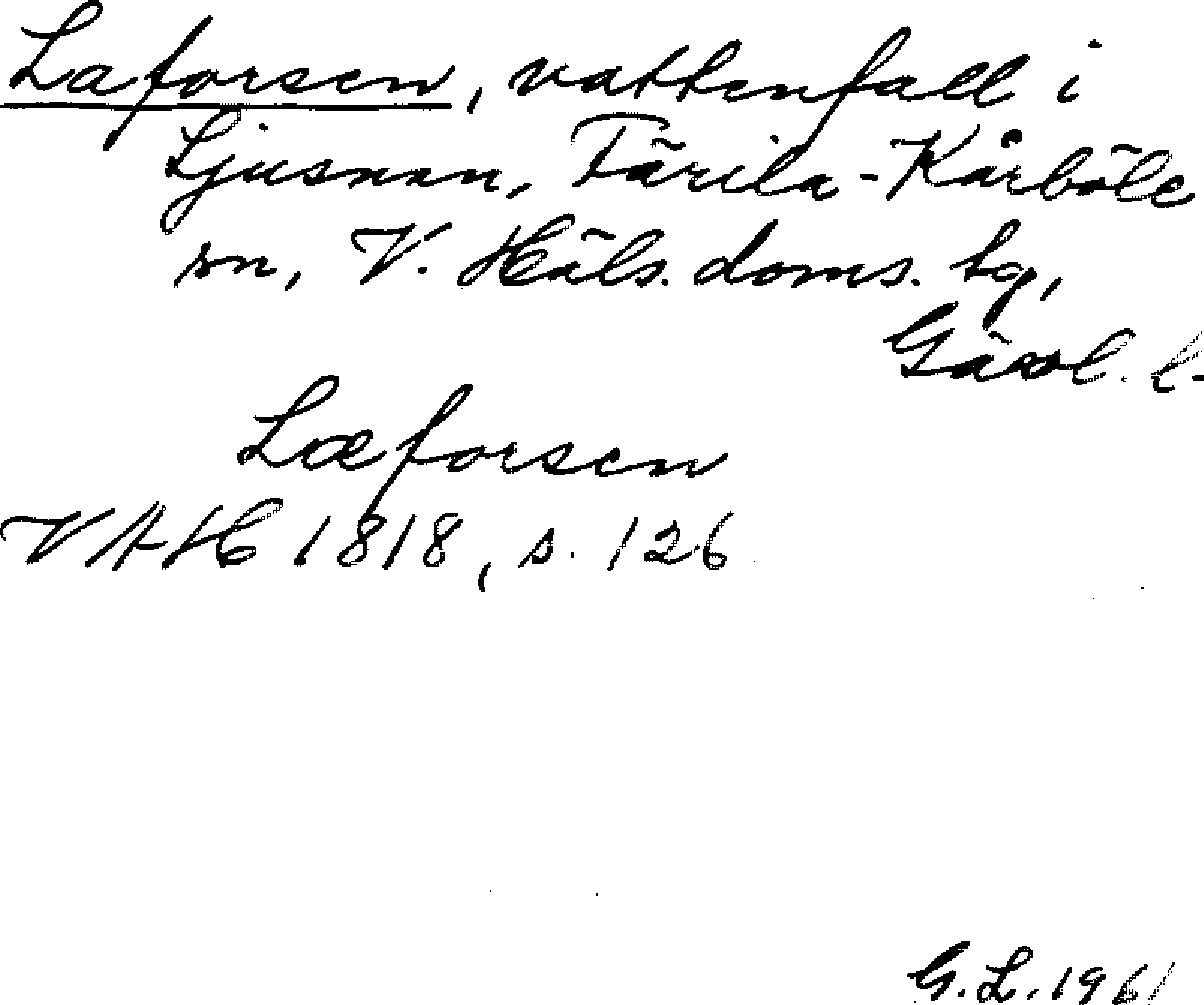 Laforsen, vattenfall i
Ljusnan, Färila-Kårböle
sn, V. Häls. doms. tg,
Gävl. l.
Læforsen
VAH 1818, s. 126
G. L. 1961